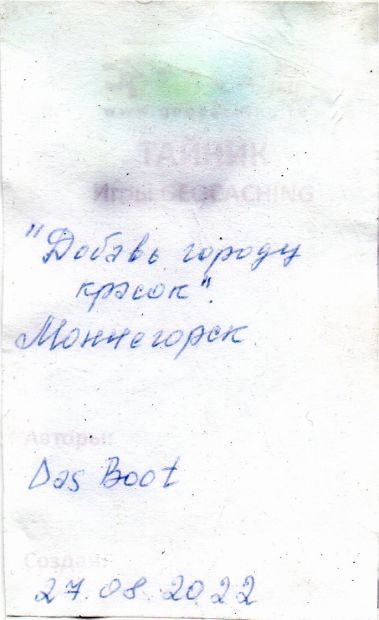 ТАЙНИК
Игры GEOCACHING
"Добавь городу
красок".
Мончегорск.
Авторы:
Das Boot
Создан:
27.08.2022